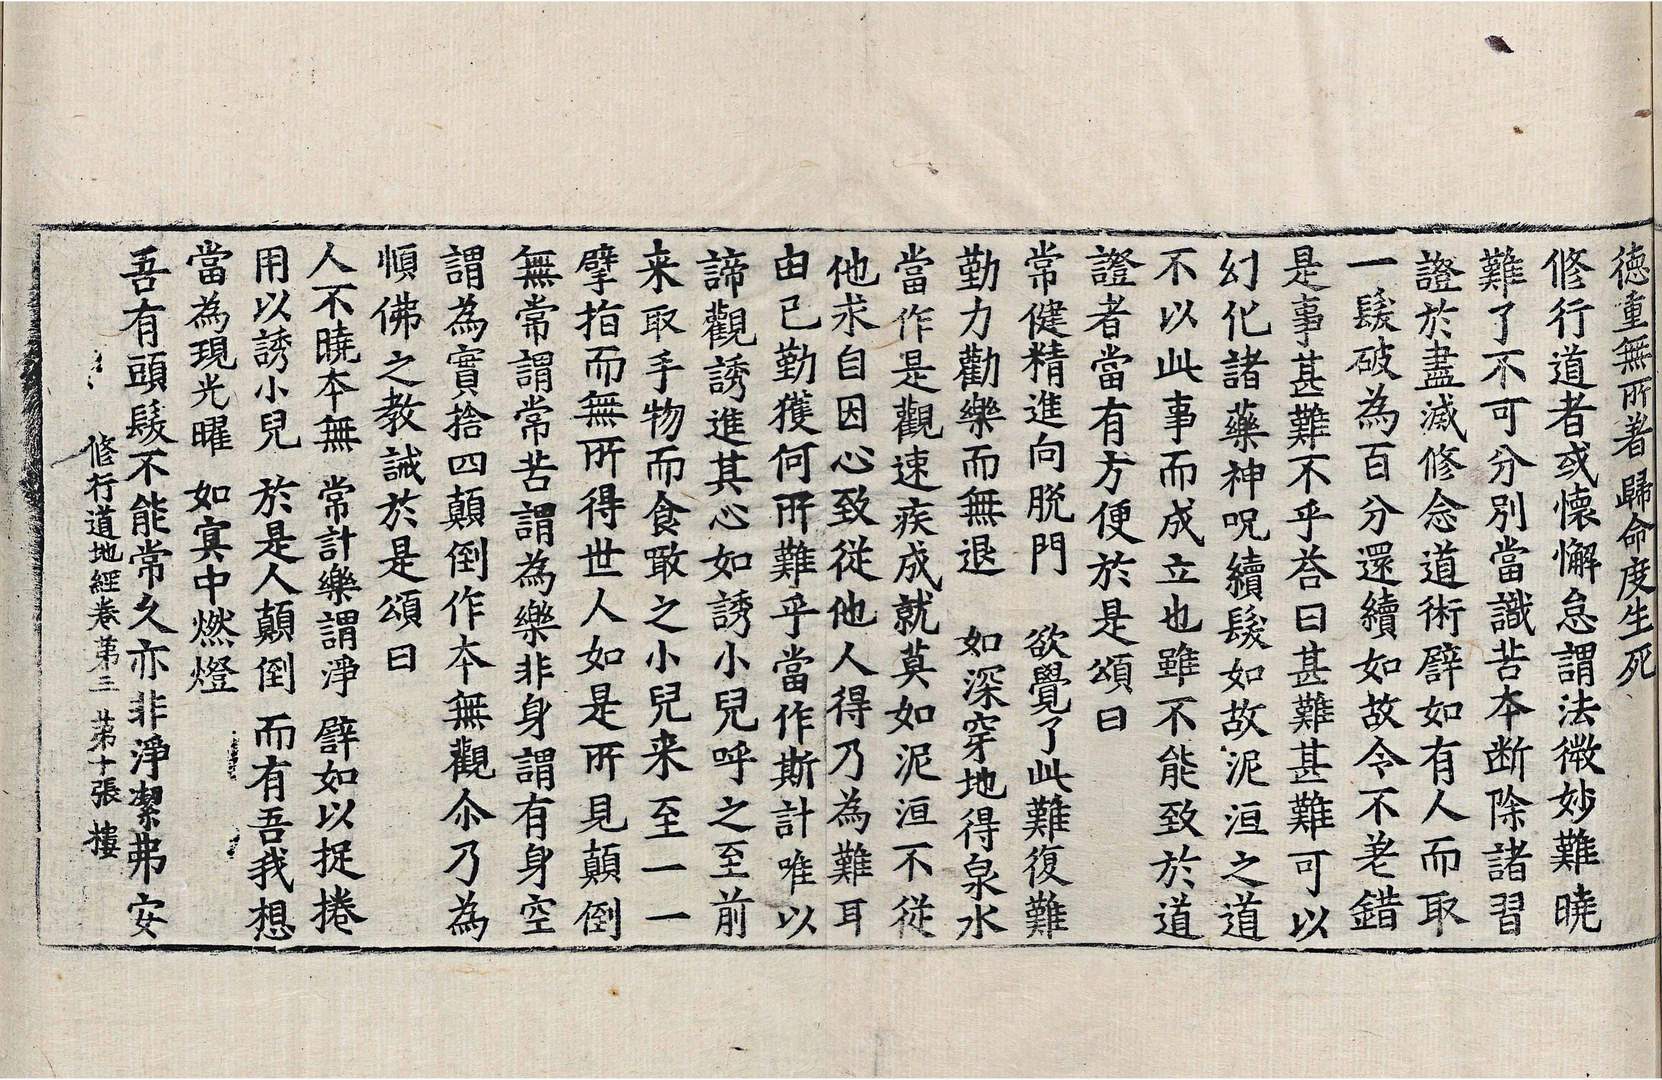 徳重無所著　歸命度生死
修行道者或懷懈怠謂法微妙難曉
難了不可分別當識苦本断除諸習
證於盡滅修念道術譬如有人而取
一髮破為百分還續如故令不差錯
是事甚難不乎荅曰甚難甚難可以
幻化諸藥神呪續髮如故泥洹之道
不以此事而成立也雖不能致於道
證者當有方便於是頌曰
常健精進向脱門　欲覺了此難復難
勤力勸樂而無退　如深穿地得泉水
當作是觀速疾成就莫如泥洹不從
他求自因心致從他人得乃為難耳
由己勤獲何所難乎當作斯計唯以
諦觀誘進其心如誘小兒呼之至前
来取手物而食噉之小兒来至一一
擘指而無所得世人如是所見顛倒
無常謂常苦謂為樂非身謂有身空
謂為實捨四顛倒作本無觀尒乃為
順佛之教誡於是頌曰
人不曉本無　常計樂謂淨　譬如以捉捲
用以誘小兒　於是人顛倒　而有吾我想
當為現光曜　如冥中燃燈
吾有頭髮不能常久亦非淨潔弗安
修行道地經卷第三　第十張　樓